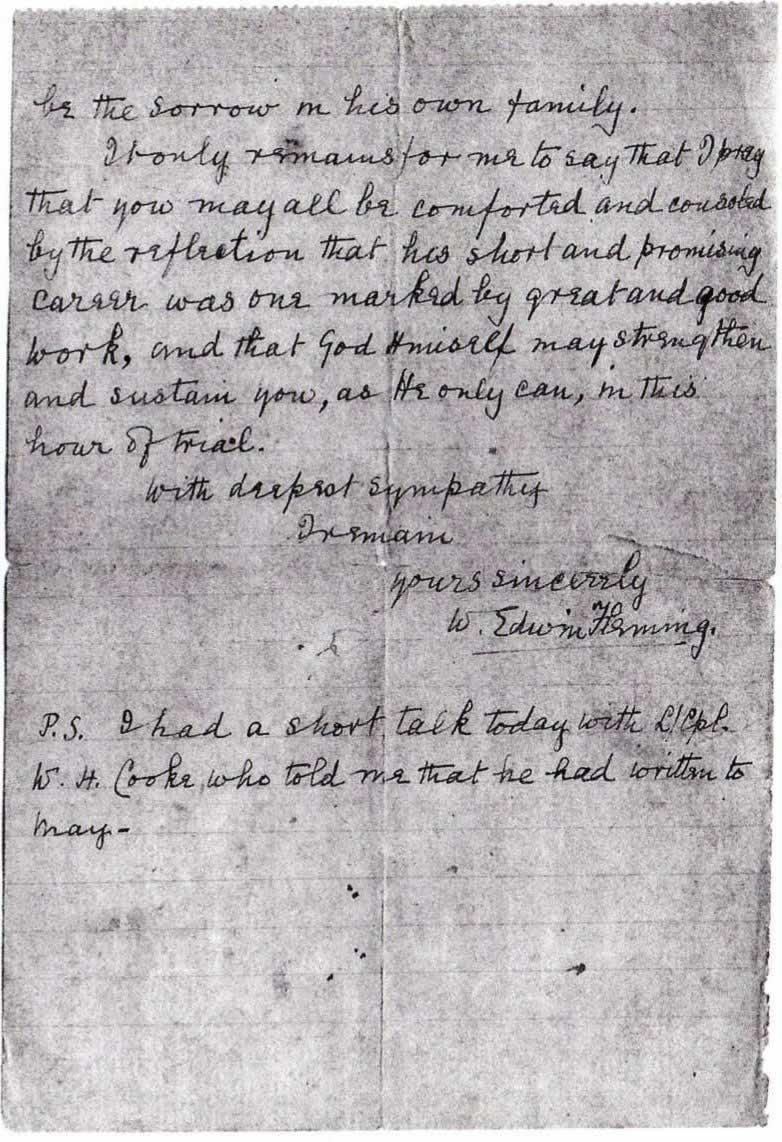 be the sorrow in his own family.
It only remains for me to say that I pray
that you may all be comforted and consoled
by the reflection that his short and promising
career was one marked by great and good
work, and that God Himself may strengthen
and sustain you, as He only can, in this
hour of trial.
With deepest sympathy
I remain
yours sincerely
W. Edwin Fleming.
P.S. I had a short talk today with L/Cpl.
W. H. Cooke who told me that he had written to
May.-